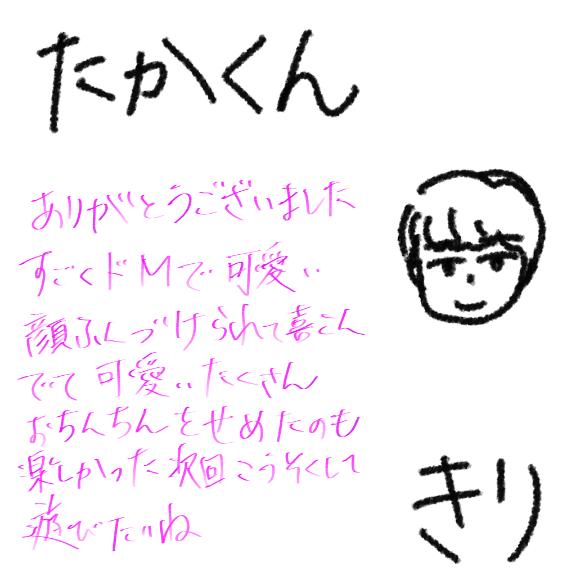 たかくん
ありがとうございました
すごくドMで可愛い
顔ふんづけられて喜こん
でて可愛いたくさん
おちんちんをせめたのも
楽しかった次回こうそくして
遊びたいね
きり